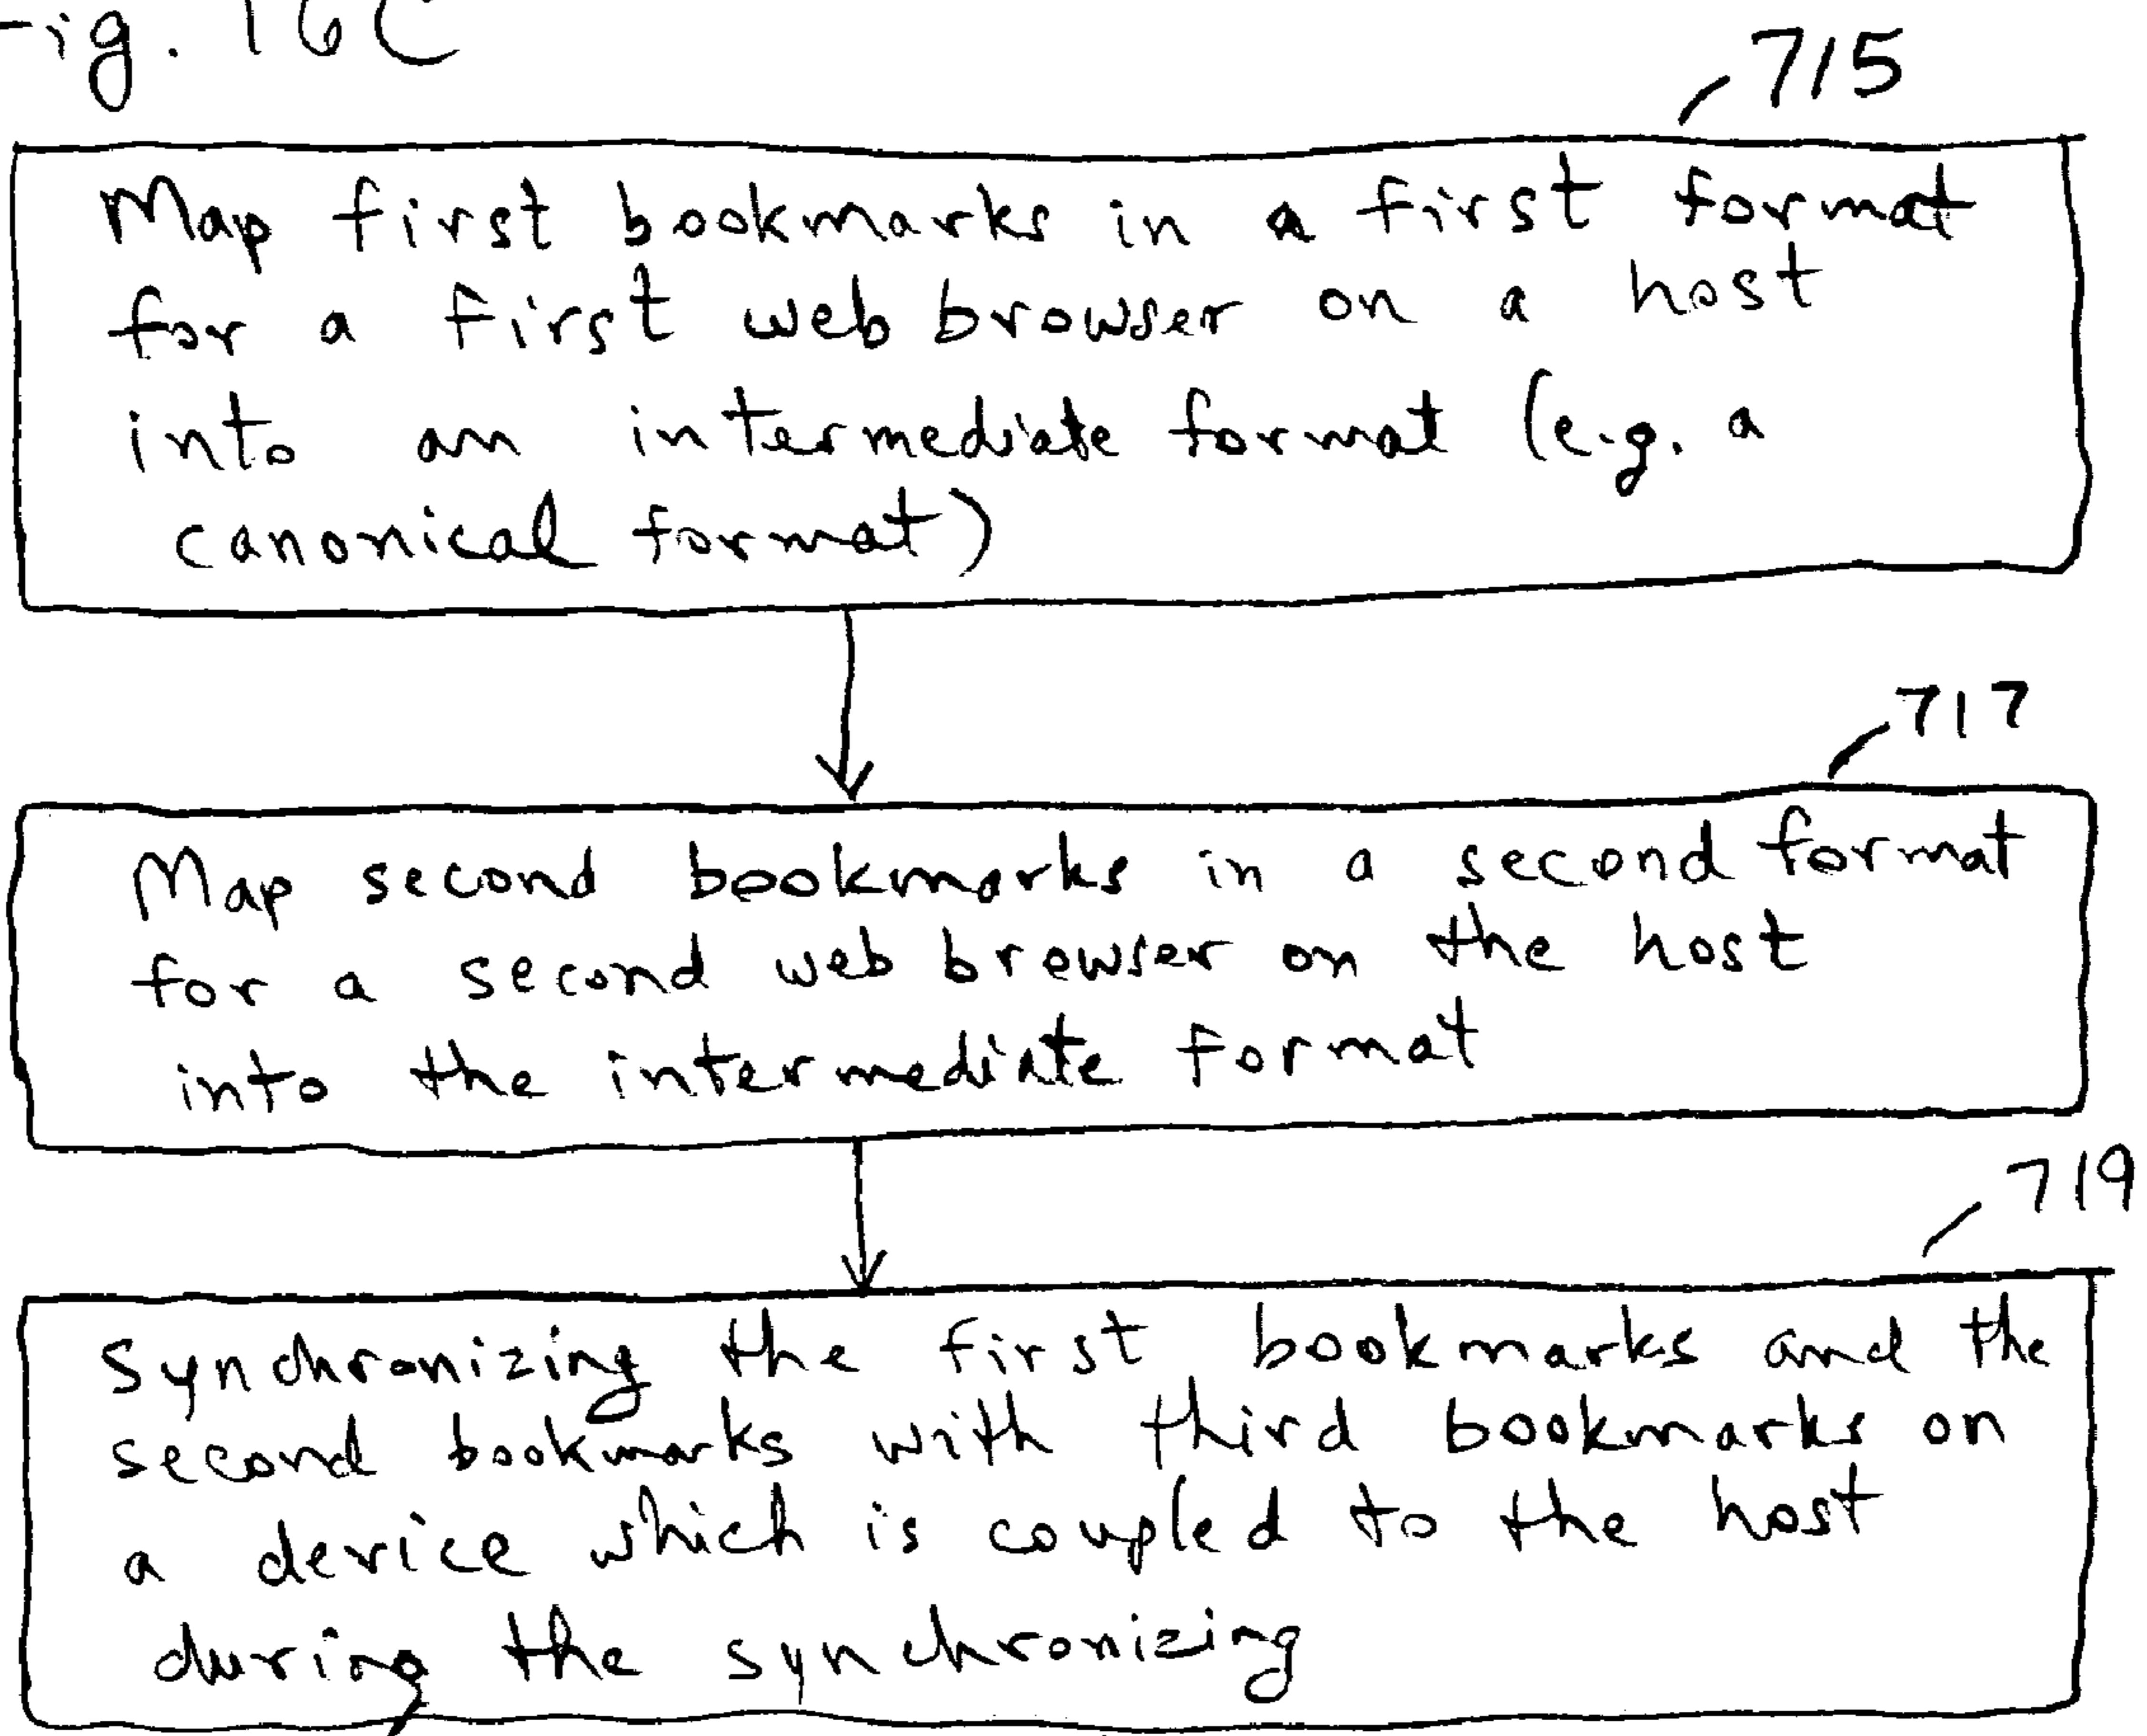 Fig. 16C
715
Map first bookmarks in a first format
for a first web browser on a host
into an intermediate format (e.g. a
canonical format)
717
Map second bookmarks in a second format
for a second web browser on the host
into the intermediate format
719
Synchronizing the first bookmarks and the
second bookmarks with third bookmarks on
a device which is coupled to the host
during the synchronizing